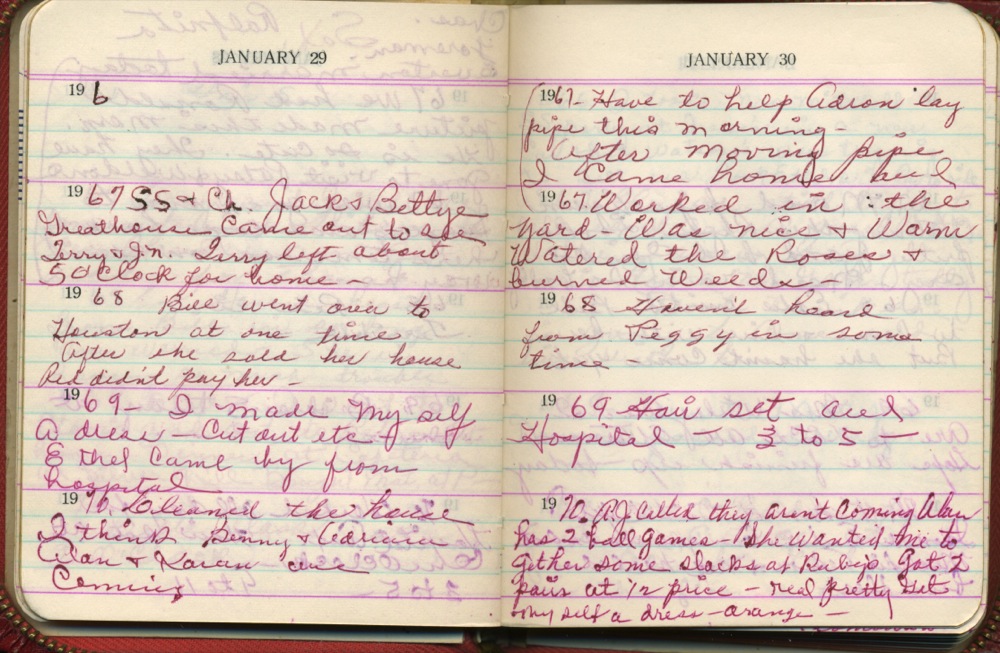 JANUARY 29
19 6
1967 SS & Ch. Jacks Bettye
Greathouse Came out to see
Terry & Jn. Terry left about
5 o'clock for home -
1968 Bill went over to
Houston at one time
After she sold her house
Red didn't pay her -
1969 - I made My self
a dress - Cut out etc
Ethel Came by from
hospital
1970. Cleaned the house
I think Benny &
Alan & Karan are
Coming
JANUARY 30
1967 - Have to help Adron lay
pipe this morning -
After moving pipe
I Came home and
1967 Worked in the
yard - Was nice & Warm
Watered the Roses &
burned Weeds -
1968 Haven't heard
from Peggy in some
time -
1969 Hair set and
Hospital - 3 to 5 -
1970. A.J Called they arn't Coming Alan
has 2 ball games - She wanted me to
get her some slacks at Ruby's Got 2
pair at 1/2 price - real pretty Got
my self a dress - orange -